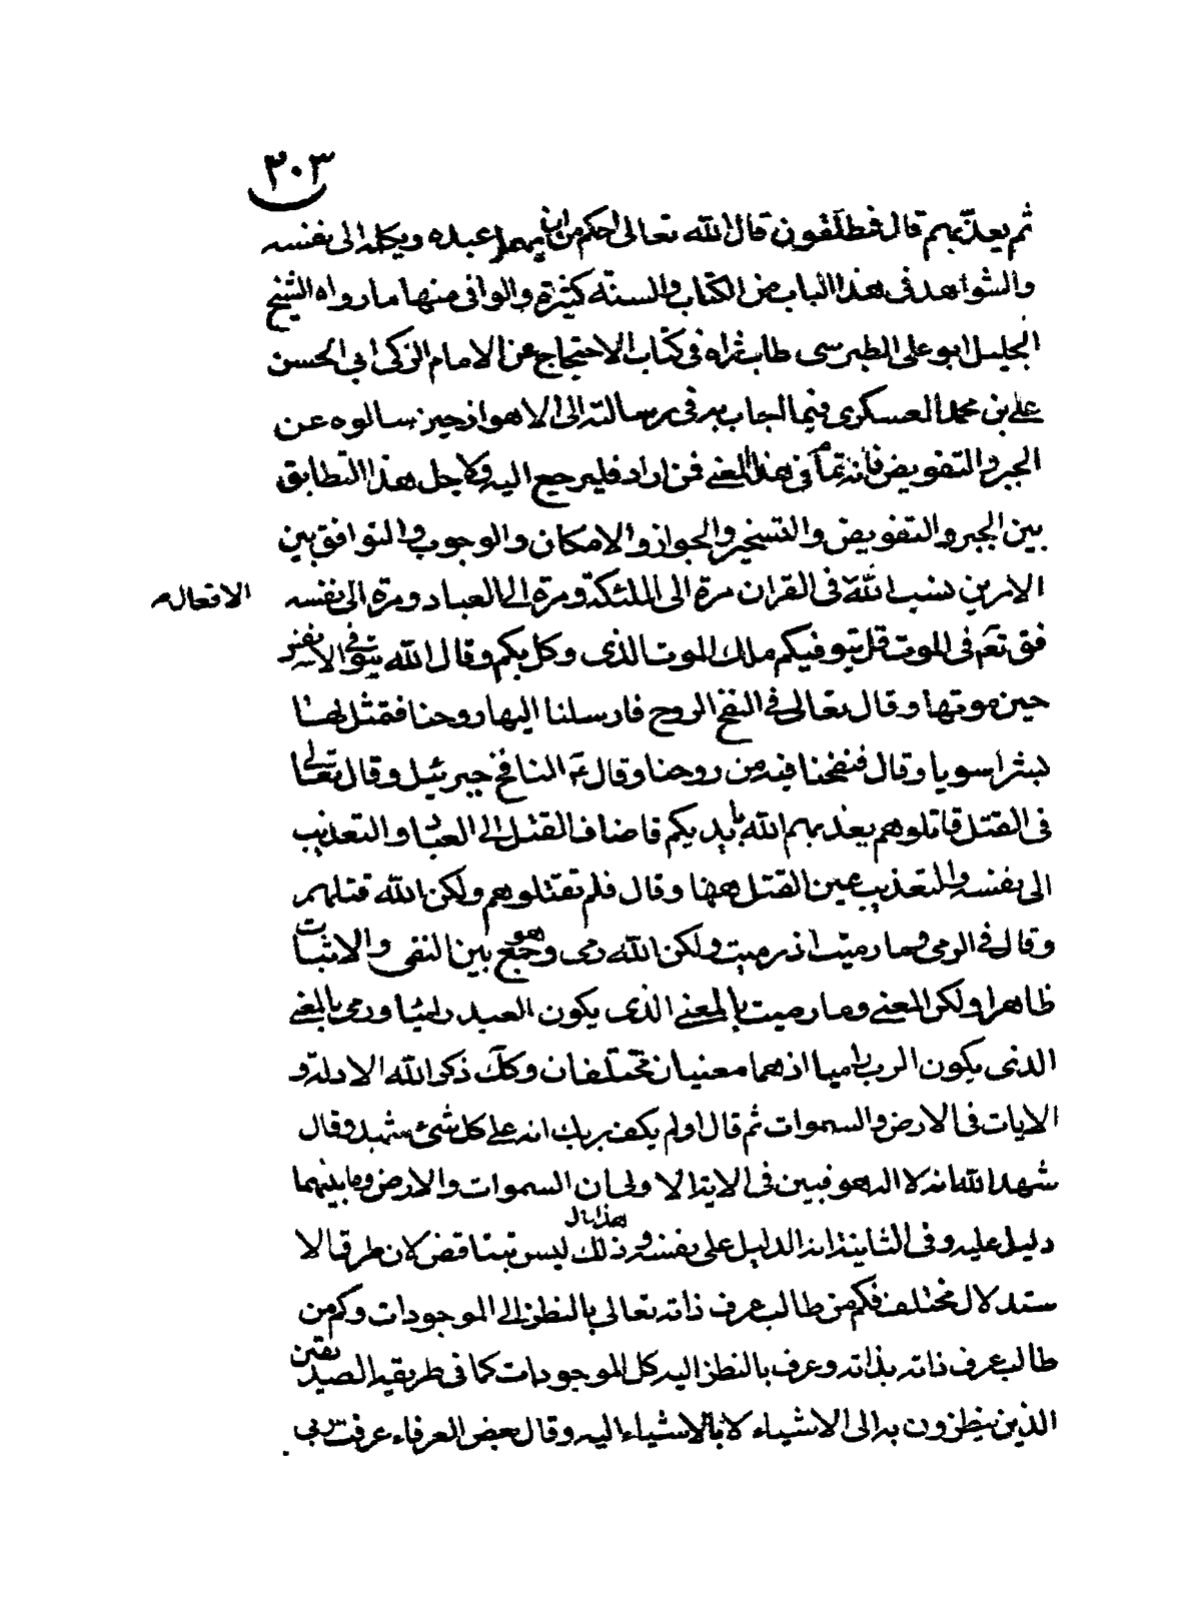 ٣٠٣
ثم يعذبهم قال فمطلقون قال الله تعالى احكم من ان يهمل عبده ويكله الى نفسه
والشواهد فى هذا الباب من الكتاب والسنة كثيرة والوافى منها ما رواه الشيخ
الجليل ابو على الطبرسى طاب ثراه فى كتاب الاحتجاج عن الامام الزكى ابى الحسن
على بن محمد العسكرى فيما اجاب به فى رسالته الى الاهواز حين سالوه عن
الجبر والتفويض فانه تمام فى هذا المعنى فمن اراد فليرجع اليه ولاجل هذا التطابق
بين الجبر والتفويض والتسخير والجواز والامكان والوجوب والتوافق بين
الامرين نسب الله فى القران مرة الى الملئكة ومرة الى العباد ومرة الى نفسه
الافعال
فق تعم فى الموت قل يتوفيكم ملك الموت الذى وكل بكم وقال الله يتوفى الانفس
حين موتها وقال تعالى فى النفخ الروح فارسلنا اليها روحنا فتمثل لها
بشرا سويا وقال فنفخنا فيه من روحنا وقال ع النافخ جبرئيل وقال تعالى
فى القتل قاتلوهم يعذبهم الله بايديكم فاضاف القتل الى العباد والتعذيب
الى نفسه والتعذيب عين القتل ههنا وقال فلم تقتلوهم ولكن الله قتلهم
وقال فى الرمى وما رميت اذ رميت ولكن الله رمى وهو جمع بين النفى والاثبات
ظاهرا ولكن المعنى وما رميت بالمعنى الذى يكون العبد راميا ورمى بالمعنى
الذى يكون الرب راميا اذ هما معنيان مختلفان وكك ذكر الله الادلة و
الايات فى الارض والسموات ثم قال اولم يكف بربك انه على كل شئ شهيد وقال
شهد الله انه لا اله هو فبين فى الاية الاولى ان السموات والارض وما بينهما
دليل عليه وفى الثانية انه الدليل على نفسه و ذلك ليس بتناقض لان طرق الا
ستدلال مختلف فكم من طالب عرف ذاته تعالى بالنظر الى الموجودات وكم من
طالب عرف ذاته بذاته وعرف بالنظر اليه كل الموجودات كما فى طريقه الصديقين
الذين ينظرون به الى الاشياء لا بالاشياء اليه وقال بعض العرفاء عرفت ربى